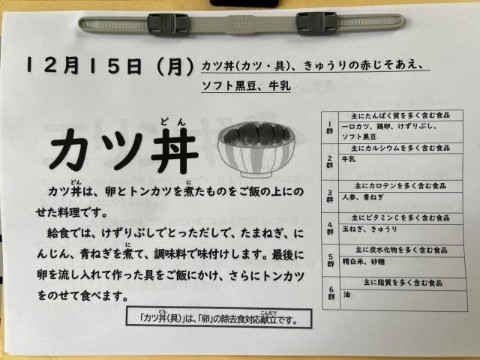 12月15日（月） カツ丼(カツ・具)、きゅうりの赤じそあえ、
ソフト黒豆、牛乳
どん
カツ丼
どん に
カツ丼は、卵とトンカツを煮たものをご飯の上に
のせた料理です。
給食では、けずりぶしでとっただしで、たまねぎ、に
に
んじん、青ねぎを煮て、調味料で味付けします。最後に
卵を流し入れて作った具をご飯にかけ、さらにトンカツ
をのせて食べます。
どん こんだて
「カツ丼(具)」は、「卵」の除去食対応献立です。
1群 主にたんぱく質を多く含む食品
一口カツ、鶏卵、けずりぶし、
ソフト黒豆
2群 主にカルシウムを多く含む食品
牛乳
3群 主にカロテンを多く含む食品
人参、青ねぎ
4群 主にビタミンCを多く含む食品
玉ねぎ、きゅうり
5群 主に炭水化物を多く含む食品
精白米、砂糖
6群 主に脂質を多く含む食品
油